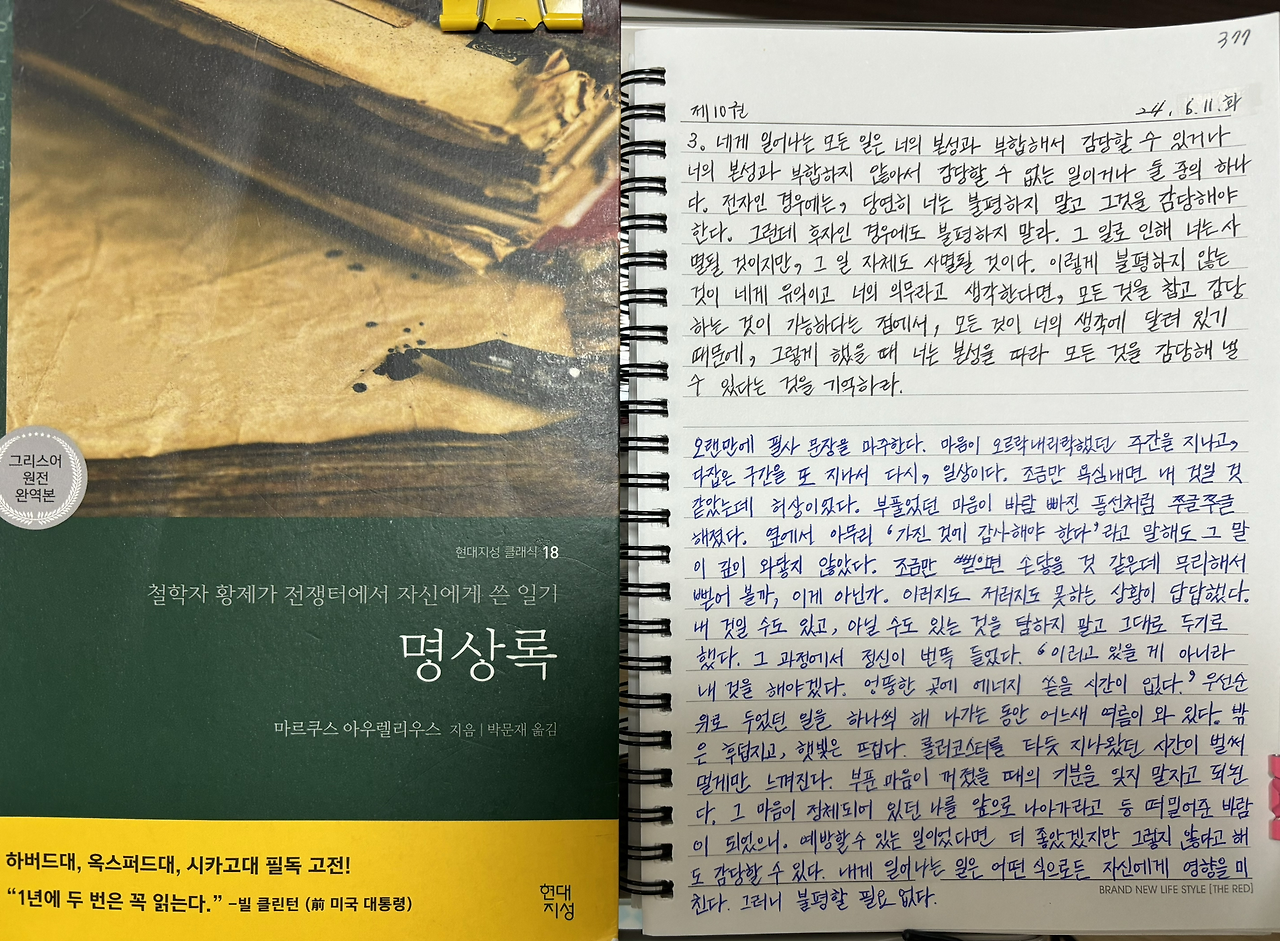 그리스어
원전
완역본
현대지성 클래식 18
철학자 황제가 전쟁터에서 자신에게 쓴 일기
명상록
마르쿠스 아우렐리우스 지음 | 박문재 옮김
하버드대, 옥스퍼드대, 시카고대 필독 고전!
“1년에 두 번은 꼭 읽는다.” –빌 클린턴 (前 미국 대통령)
현대
지성
377
제10권 24. 6.11.화
3. 네게 일어나는 모든 일은 너의 본성과 부합해서 감당할 수 있거나
너의 본성과 부합하지 않아서 감당할 수 없는 일이거나 둘 중의 하나
다. 전자인 경우에는, 당연히 너는 불평하지 말고 그것을 감당해야
한다. 그런데 후자인 경우에도 불평하지 말라. 그 일로 인해 너는 사
멸될 것이지만, 그 일 자체도 사멸될 것이다. 이렇게 불평하지 않는
것이 네게 유익이고 너의 의무라고 생각한다면, 모든 것을 참고 감당
하는 것이 가능하다는 점에서, 모든 것이 너의 생각에 달려 있기
때문에, 그렇게 했을 때 너는 본성을 따라 모든 것을 감당해 낼
수 있다는 것을 기억하라.
오랜만에 필사 문장을 마주한다. 마음이 오르락내리락했던 주간을 지나고,
다잡은 구간을 또 지나서 다시, 일상이다. 조금만 욕심내면 내 것일 것
같았는데 허상이었다. 부풀었던 마음이 바람 빠진 풍선처럼 쭈글쭈글
해졌다. 옆에서 아무리 ‘가진 것에 감사해야 한다’라고 말해도 그 말
이 깊이 와닿지 않았다. 조금만 뻗으면 손닿을 것 같은데 무리해서
뻗어 볼까, 이게 아닌가. 이러지도 저러지도 못하는 상황이 답답했다.
내 것일 수도 있고, 아닐 수도 있는 것을 탐하지 말고 그대로 두기로
했다. 그 과정에서 정신이 번뜩 들었다. ‘이러고 있을 게 아니라
내 것을 해야겠다. 엉뚱한 곳에 에너지 쏟을 시간이 없다.’ 우선순
위로 두었던 일을 하나씩 해 나가는 동안 어느새 여름이 와 있다. 밖
은 후텁지고, 햇빛은 뜨겁다. 롤러코스터를 타듯 지나왔던 시간이 벌써
멀게만 느껴진다. 부푼 마음이 꺼졌을 때의 기분을 잊지 말자고 되뇐
다. 그 마음이 정체되어 있던 나를 앞으로 나아가라고 등 떠밀어준 바람
이 되었으니. 예방할 수 있는 일이었다면 더 좋았겠지만 그렇지 않다고 해
도 감당할 수 있다. 내게 일어나는 일은 어떤 식으로든 자신에게 영향을 미
친다. 그러니 불평할 필요 없다.
BRAND NEW LIFE STYLE [THE RED]